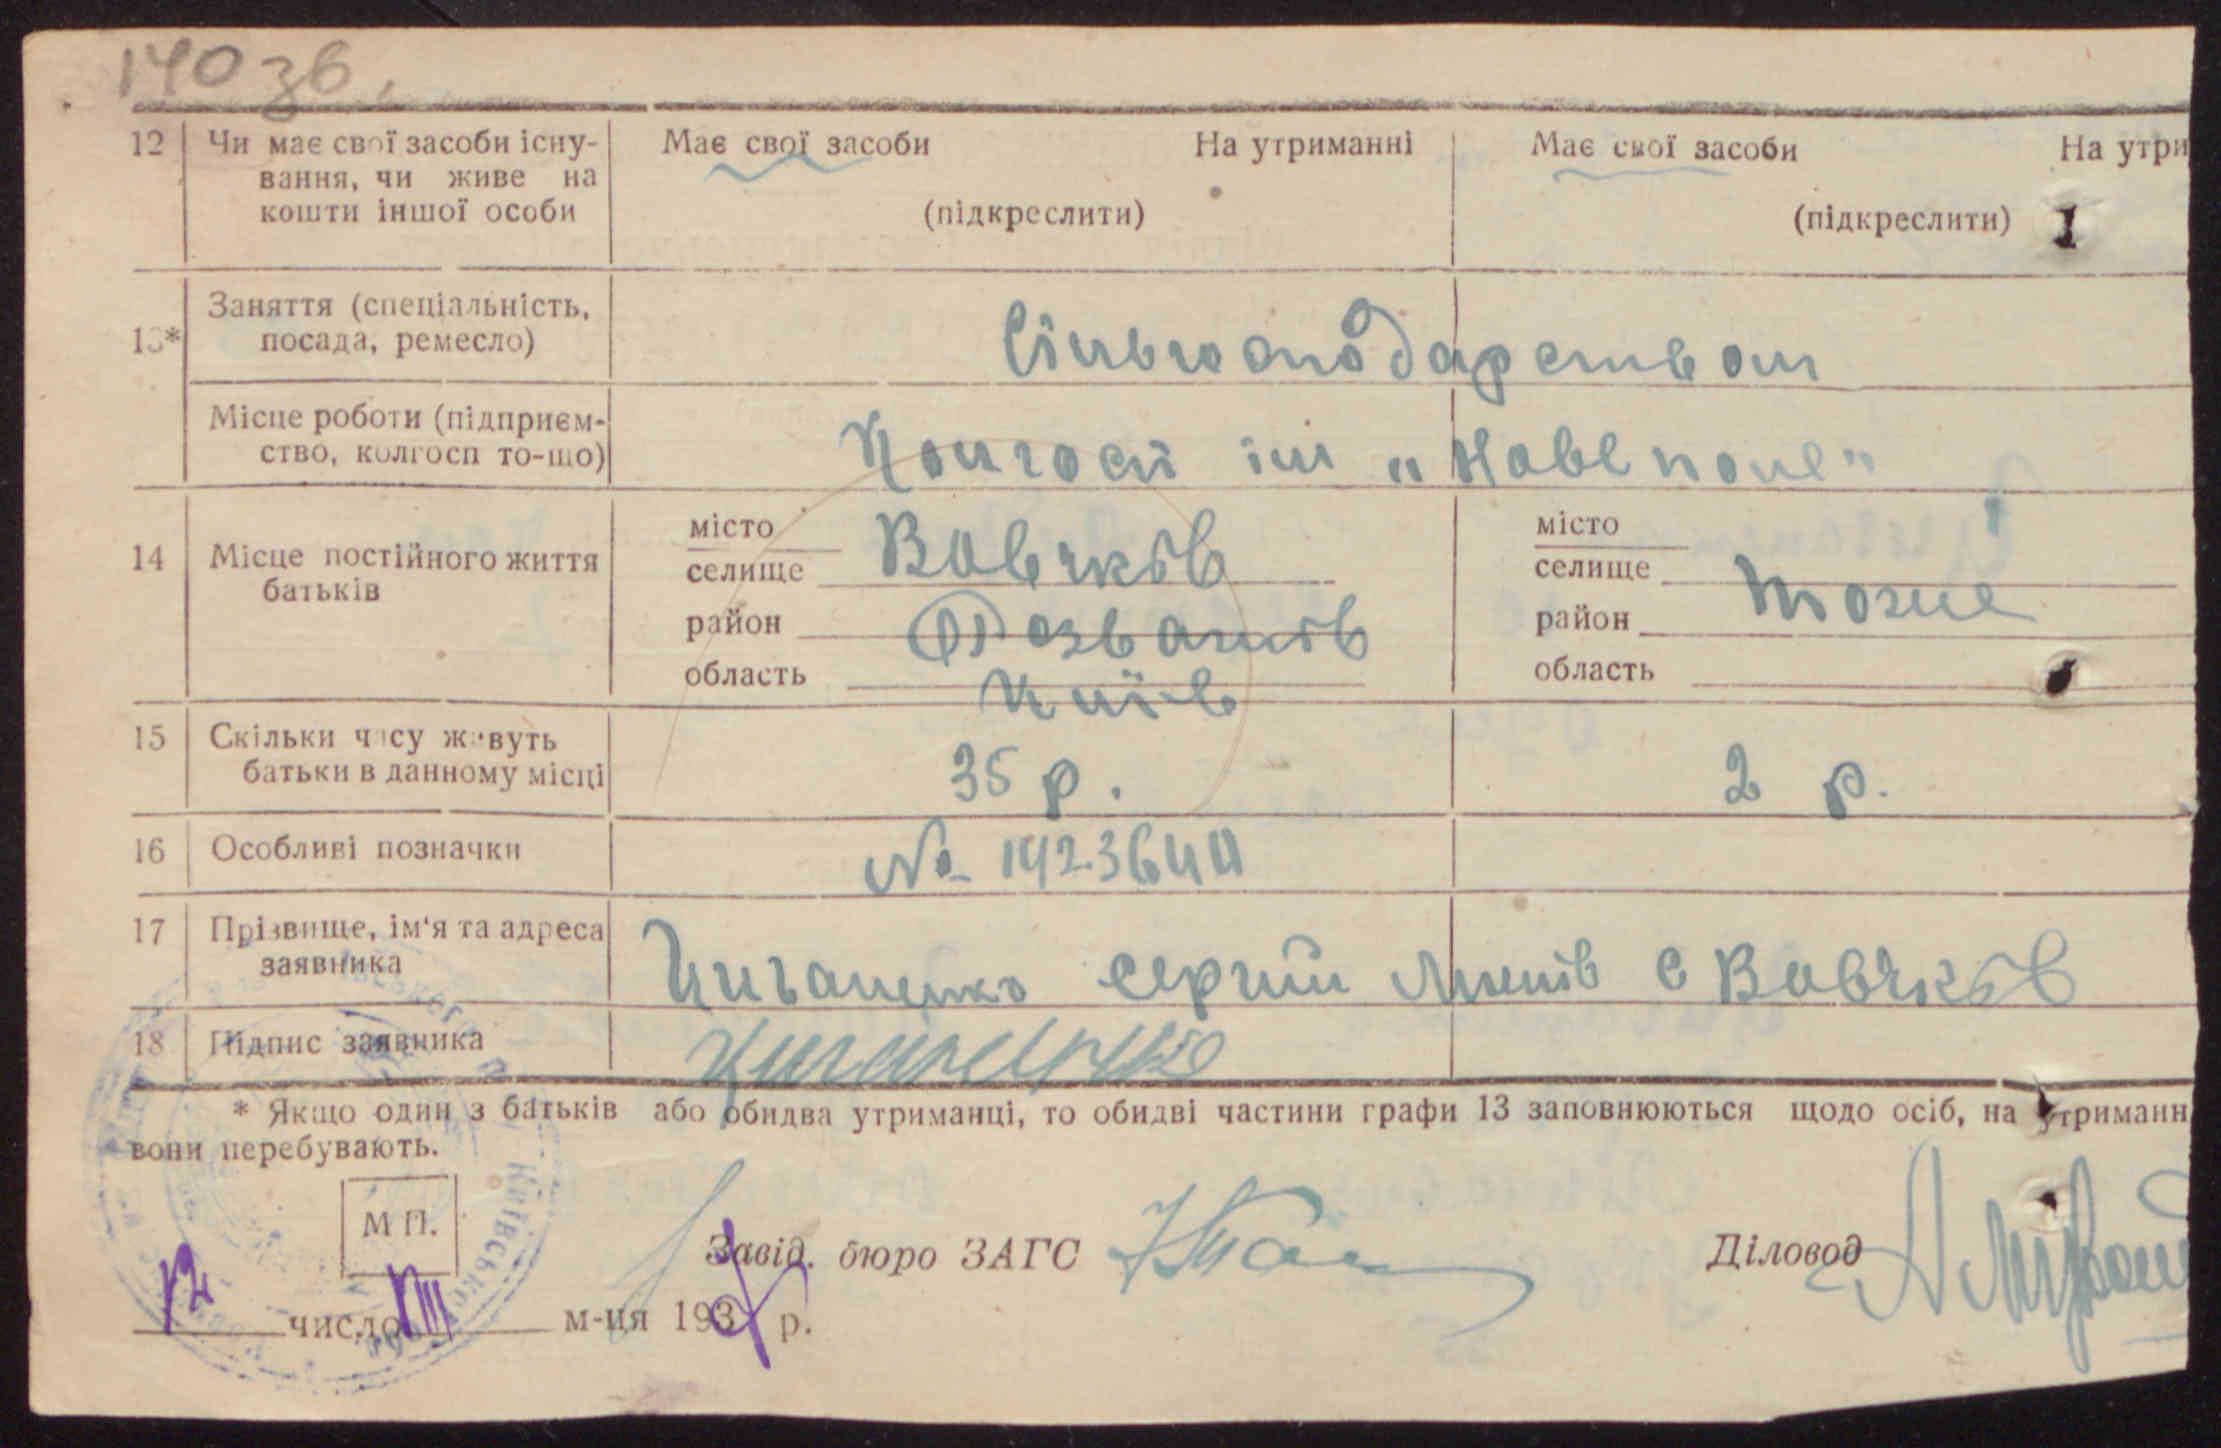 140 зв.
12 Чи має свої засоби існу- Має свої засоби На утриманні Має свої засоби На утри
вання, чи живе на
кошти іншої особи (підкреслити) (підкреслити)
Заняття (спеціальність,
13* посада, ремесло) Сільгосподарством
Місце роботи (підприєм-
ство, колгосп то-що) Колгосп ім „Нове поле"
місто Вовчків місто
14 Місце постійного життя селище селище Тоже
батьків район Розважів район
область Київ область
15 Скільки часу живуть
батьки в данному місці 35 р. 2 р.
16 Особливі позначки №
17 Прізвище, ім'я та адреса
заявника Циганенко Сергій с Вовчків
18 Підпис заявника Циганенко
* Якщо один з батьків або обидва утриманці, то обидві частини графи 13 заповнюються щодо осіб, на утриманн
вони перебувають.
М П.
Завід. бюро ЗАГС Діловод
12 число VIII м-ця 193 р.